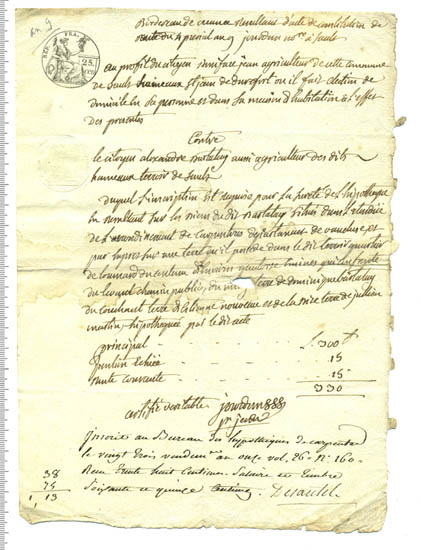 an 9
REP. FRA.
25 cen
Bordereau de creance resultant d'acte de constitution de
rente du 4 prerial an 9 jourdan no.re à Sault
au profit du citoyen boniface jean agriculteur de cette commune
de Sault hameaux St jean de durefort ou il fait election de
domicile en sa personne et dans sa maison d'habitation a l'effet
des presentes
Contre
le citoyen alexandre bastalay aussi agriculteur des dits
hameaux terroir de Sault
Duquel l'inscription est requise pour la sureté de l'hypotheque
en resultant sur les biens du dit situés dans l'etendue
de l'arrondissement de Carpentras departement de vaucluse et
par expres sur une terre qu'il possede dans le dit terroir quartier
de contenant environ eminees
du levant chemin public, du terre de dominique bastalay
du couchant terre d' nouveau et de la bise terre de julien
hypothequée par le dit acte
principal - - - - 300 #
Rente Echüe - - - - 15
rente courante - - - - 15
330
certifié veritable jourdan
Inscrit au Bureau des hypotheques de carpentras
le vingt trois vendem.re an onze vol. 26. N.o 160.
Reçu trente huit Centimes Salaire et timbre
Soixante et quinze Centimes
38
75
1 13